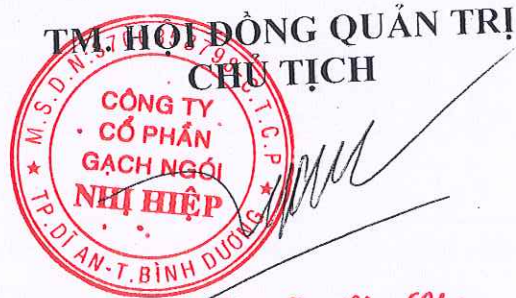 TM. HỘI ĐỒNG QUẢN TRỊ
CHỦ TỊCH
CÔNG TY
CỔ PHẦN
GẠCH NGÓI
NHỊ HIỆP
TP.DĨ AN-T.BÌNH DƯƠNG